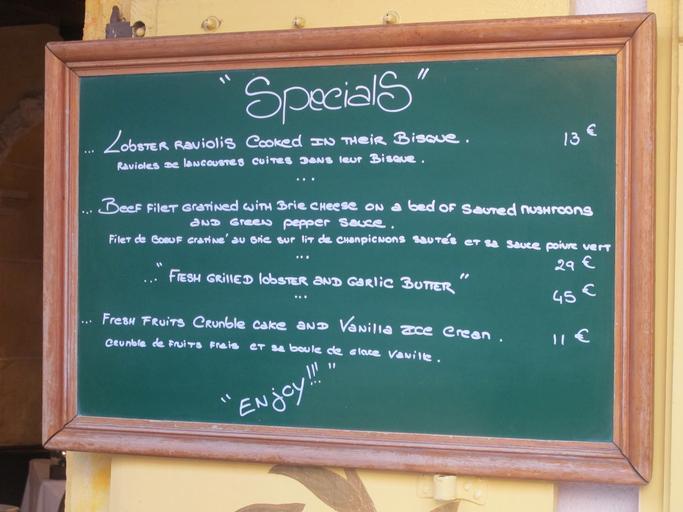 "Specials"
... Lobster Raviolis Cooked in their Bisque. 13 €
Ravioles de langoustes cuites dans leur Bisque.
...
... Beef filet gratined with Brie cheese on a bed of Sauted mushrooms
and Green pepper Sauce.
Filet de Boeuf Gratiné au Brie sur lit de champignons sautés et sa sauce poivre vert
... 29 €
... "Fresh Grilled lobster and Garlic Butter" 45 €
...
... Fresh Fruits Crumble cake and Vanilla Ice Cream. 11 €
Crumble de Fruits Frais et sa boule de Glace Vanille.
"Enjoy!!!"